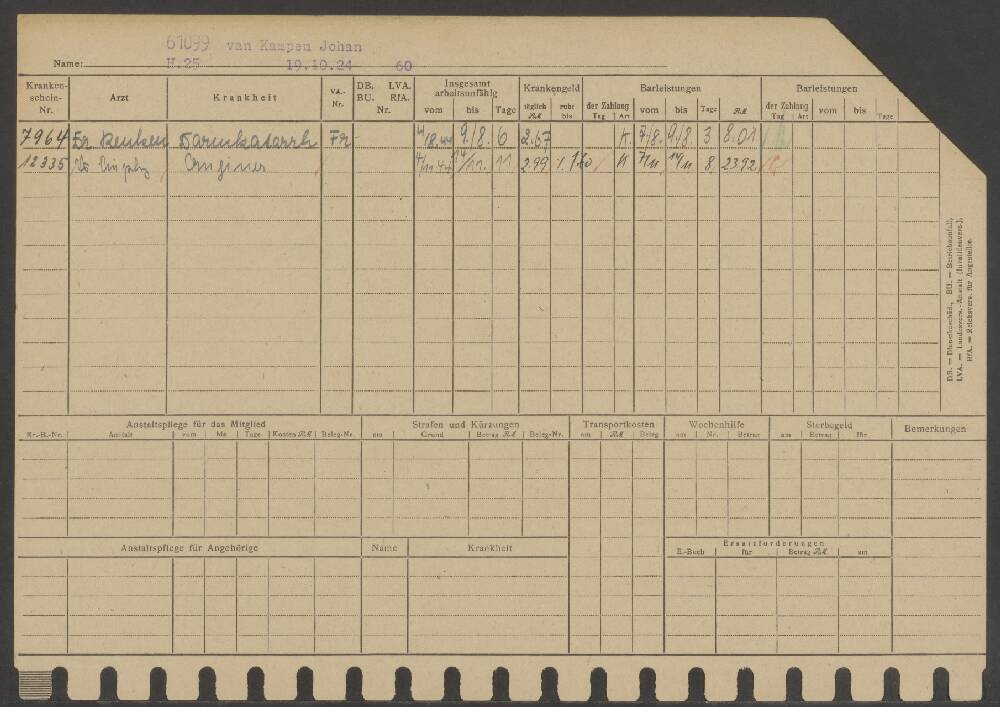 61099 van Kampen Johan
Name: H.25 19.10.24 60
Kranken-schein-Nr. Arzt Krankheit VA.-Nr. DB. BU. LVA. RfA. Nr. Insgesamt arbeitsunfähig vom bis Tage Krankengeld täglich RM ruht bis Barleistungen der Zahlung Tag Art vom bis Tage RM Barleistungen der Zahlung Tag Art vom bis Tage
7964 Dr Renken Darmkatarrh Fr 4/8.44 9/8. 6 2.67 K. 7/8. 9/8 3 8.01
12335 Angina 11 2.99 K 7/11 14/11 8, 2392
DB. = Dienstbeschäd., BU. = Betriebsunfall,
LVA. = Landesvers.-Anstalt (Invalidenvers.),
RfA. = Reichsvers. für Angestellte.
Anstaltspflege für das Mitglied Strafen und Kürzungen Transportkosten Wochenhilfe Sterbegeld Bemerkungen
Kr.-B.-Nr. Anstalt vom bis Tage Kosten RM Beleg-Nr. am Grund Betrag RM Beleg-Nr. am RM Beleg am Nr. Betrag am Betrag für
Anstaltspflege für Angehörige Name Krankheit Ersatzforderungen
E.-Buch für Betrag RM am